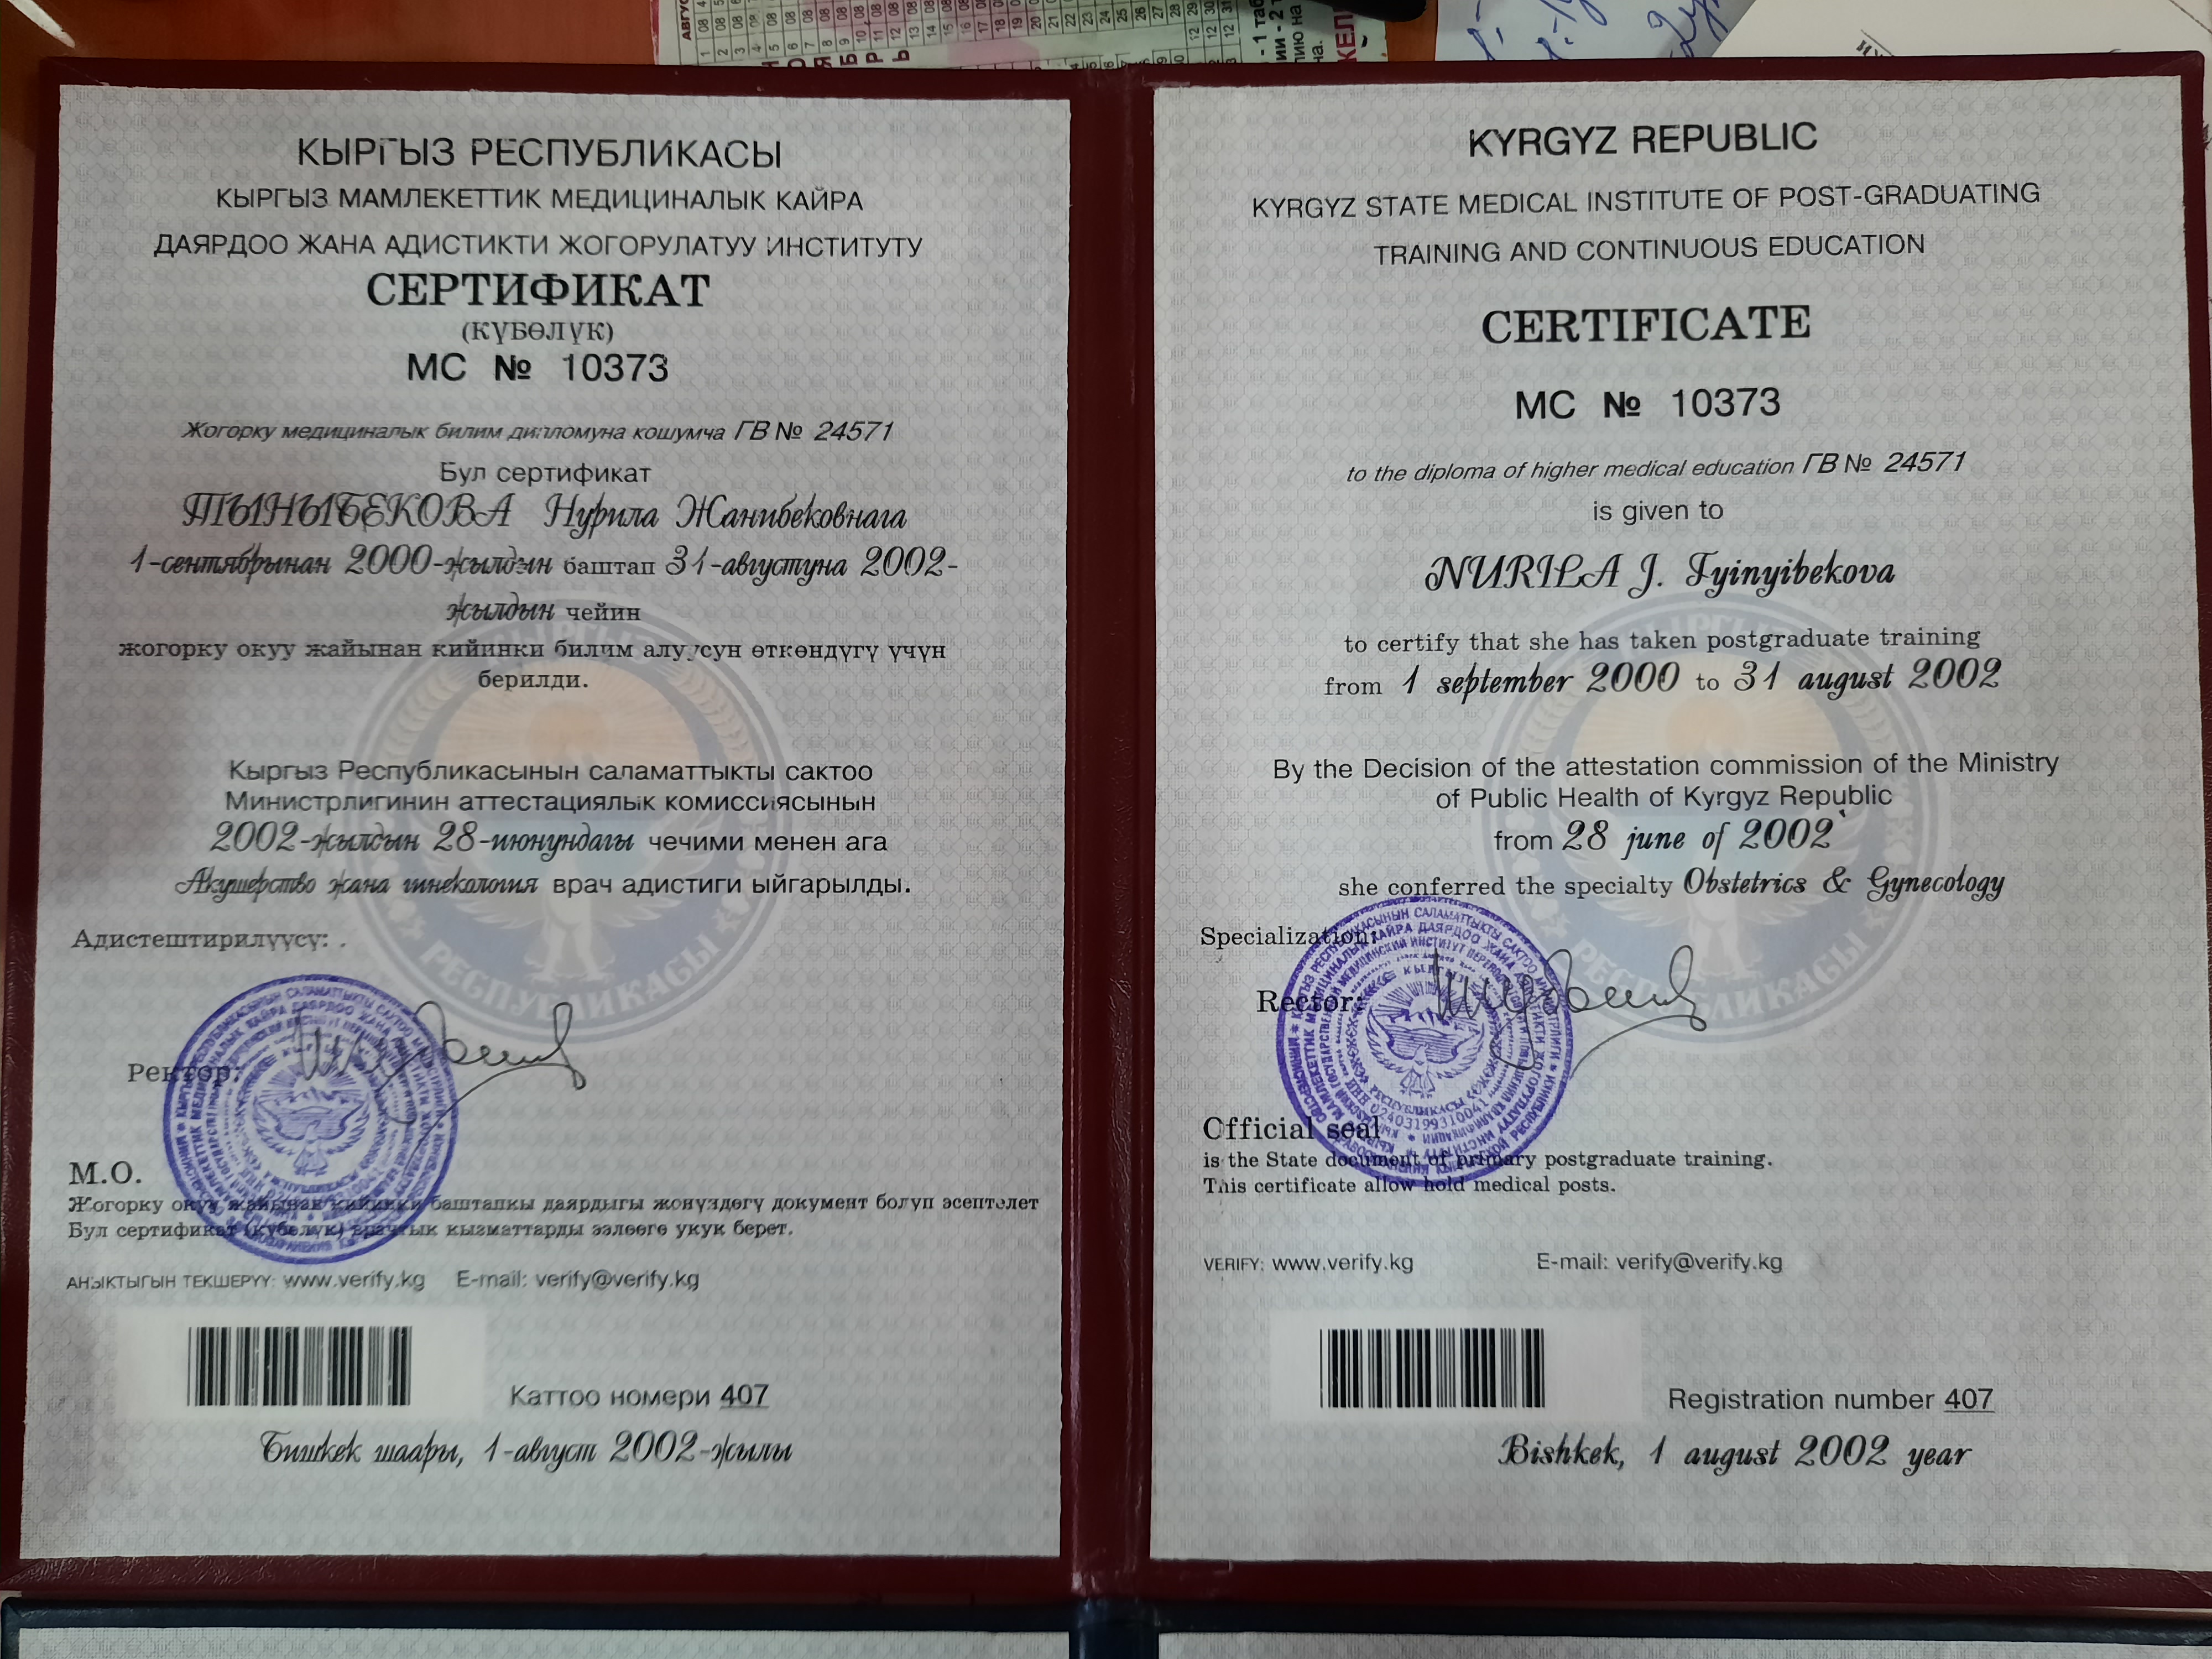 КЫРГЫЗ РЕСПУБЛИКАСЫ
КЫРГЫЗ МАМЛЕКЕТТИК МЕДИЦИНАЛЫК КАЙРА
ДАЯРДОО ЖАНА АДИСТИКТИ ЖОГОРУЛАТУУ ИНСТИТУТУ
СЕРТИФИКАТ
(КҮБӨЛҮК)
МС № 10373
Жогорку медициналык билим дипломуна кошумча ГВ № 24571
Бул сертификат
ТЫНЫБЕКОВА Нурила Жанибековнага
1-сентябрынан 2000-жылдын баштап 31-августуна 2002-
жылдын чейин
жогорку окуу жайынан кийинки билим алуусун өткөндүгү үчүн
берилди.
Кыргыз Республикасынын саламаттыкты сактоо
Министрлигинин аттестациялык комиссиясынын
2002-жылдын 28-июнундагы чечими менен ага
Акушерство жана гинекология врач адистиги ыйгарылды.
Адистештирилүүсү:
Ректор:
М.О.
Жогорку окуу жайынан кийинки баштапкы даярдыгы жөнүндөгү документ болуп эсептелет
Бул сертификат (күбөлүк) врачтык кызматтарды ээлөөгө укук берет.
АНЫКТЫГЫН ТЕКШЕРҮҮ: www.verify.kg E-mail: verify@verify.kg
Каттоо номери 407
Бишкек шаары, 1-август 2002-жылы
KYRGYZ REPUBLIC
KYRGYZ STATE MEDICAL INSTITUTE OF POST-GRADUATING
TRAINING AND CONTINUOUS EDUCATION
CERTIFICATE
МС № 10373
to the diploma of higher medical education ГВ № 24571
is given to
NURILA J. Tyinyibekova
to certify that she has taken postgraduate training
from 1 september 2000 to 31 august 2002
By the Decision of the attestation commission of the Ministry
of Public Health of Kyrgyz Republic
from 28 june of 2002
she conferred the specialty Obstetrics & Gynecology
Specialization:
Rector:
Official seal
is the State document of primary postgraduate training.
This certificate allow hold medical posts.
VERIFY: www.verify.kg E-mail: verify@verify.kg
Registration number 407
Bishkek, 1 august 2002 year